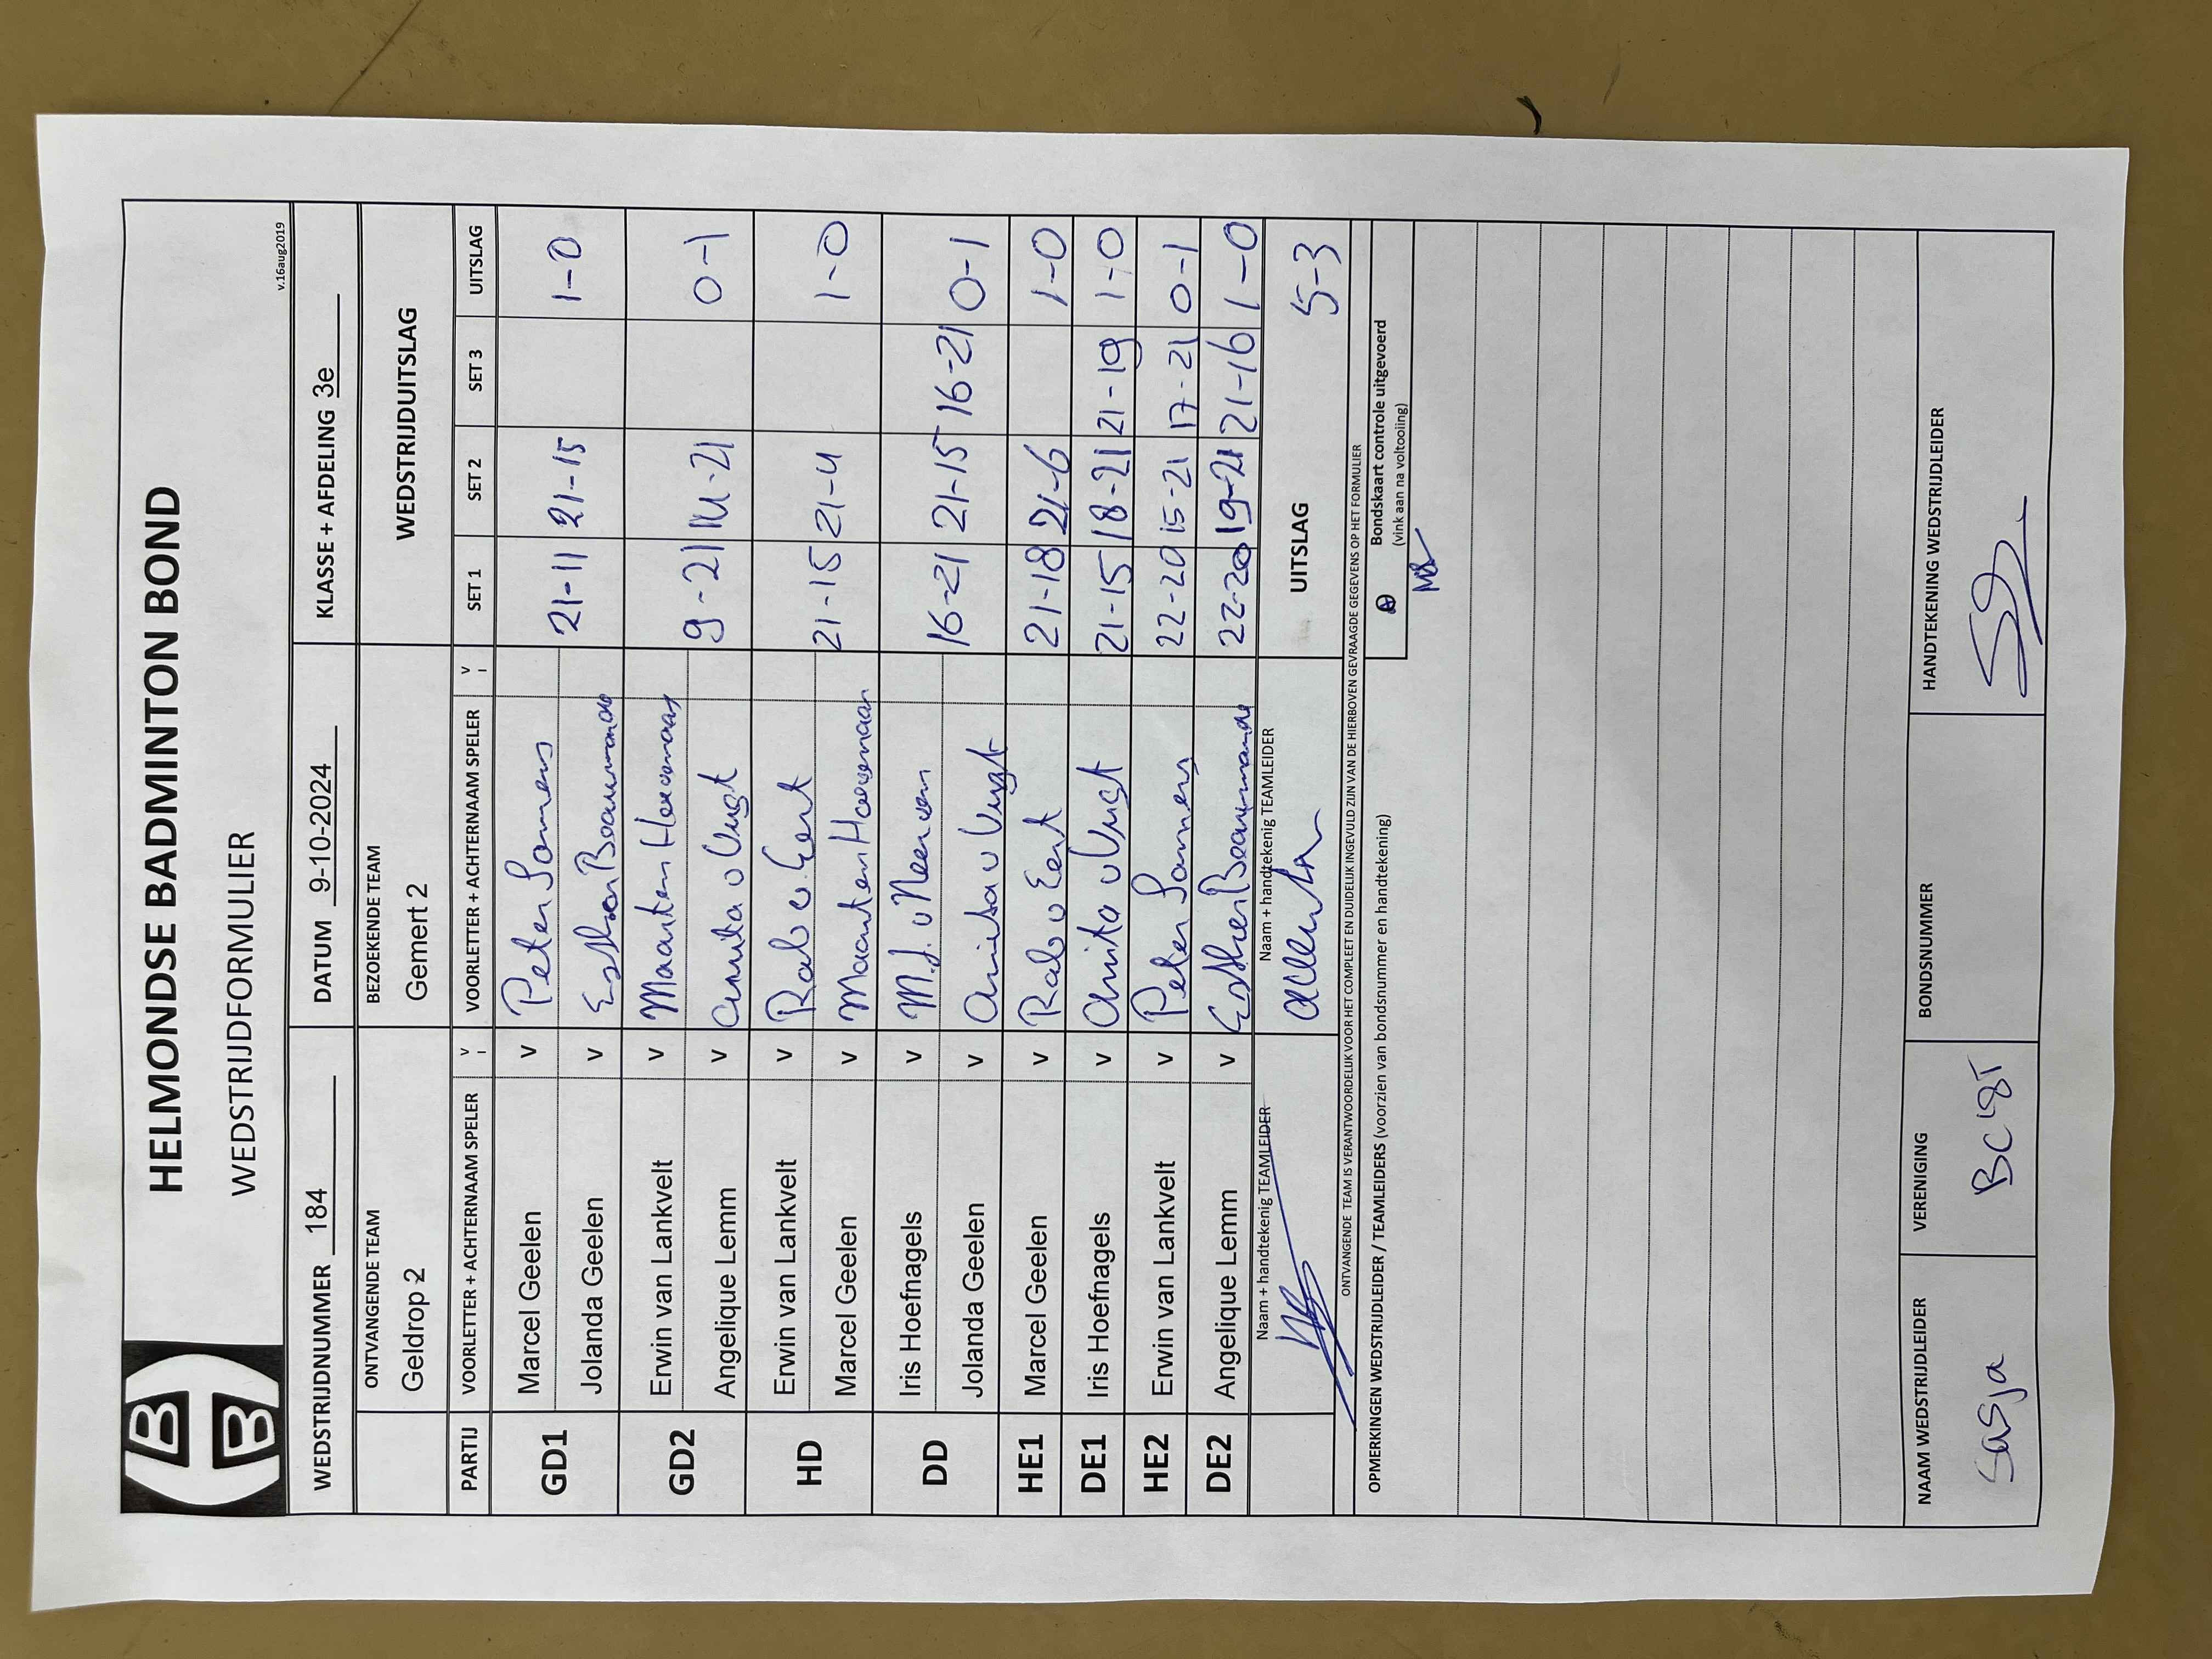 HELMONDSE BADMINTON BOND
WEDSTRIJDFORMULIER
v.16aug2019
WEDSTRIJDNUMMER 184 DATUM 9-10-2024 KLASSE + AFDELING 3e
ONTVANGENDE TEAM BEZOEKENDE TEAM WEDSTRIJDUITSLAG
Geldrop 2 Gemert 2
PARTIJ VOORLETTER + ACHTERNAAM SPELER V VOORLETTER + ACHTERNAAM SPELER V SET 1 SET 2 SET 3 UITSLAG
GD1 Marcel Geelen v Peter Somers 21-11 21-15 1-0
Jolanda Geelen v Esther
GD2 Erwin van Lankvelt v Maarten 9-21 14-21 0-1
Angelique Lemm v Anita v Vugt
HD Erwin van Lankvelt v Rob v. Eert 21-15 21-4 1-0
Marcel Geelen v Maarten
DD Iris Hoefnagels v M.J. v 16-21 21-15 16-21 0-1
Jolanda Geelen v Anita v Vugt
HE1 Marcel Geelen v Rob v Eert 21-18 21-6 1-0
DE1 Iris Hoefnagels v Anita v Vugt 21-15 18-21 21-19 1-0
HE2 Erwin van Lankvelt v Peter Somers 22-20 15-21 17-21 0-1
DE2 Angelique Lemm v Esther 22-20 19-21 21-16 1-0
Naam + handtekenig TEAMLEIDER Naam + handtekenig TEAMLEIDER UITSLAG 5-3
ONTVANGENDE TEAM IS VERANTWOORDELIJK VOOR HET COMPLEET EN DUIDELIJK INGEVULD ZIJN VAN DE HIERBOVEN GEVRAAGDE GEGEVENS OP HET FORMULIER
OPMERKINGEN WEDSTRIJDLEIDER / TEAMLEIDERS (voorzien van bondsnummer en handtekening)
Bondskaart controle uitgevoerd
(vink aan na voltooiing)
NAAM WEDSTRIJDLEIDER VERENIGING BONDSNUMMER HANDTEKENING WEDSTRIJDLEIDER
Sasja BC'85